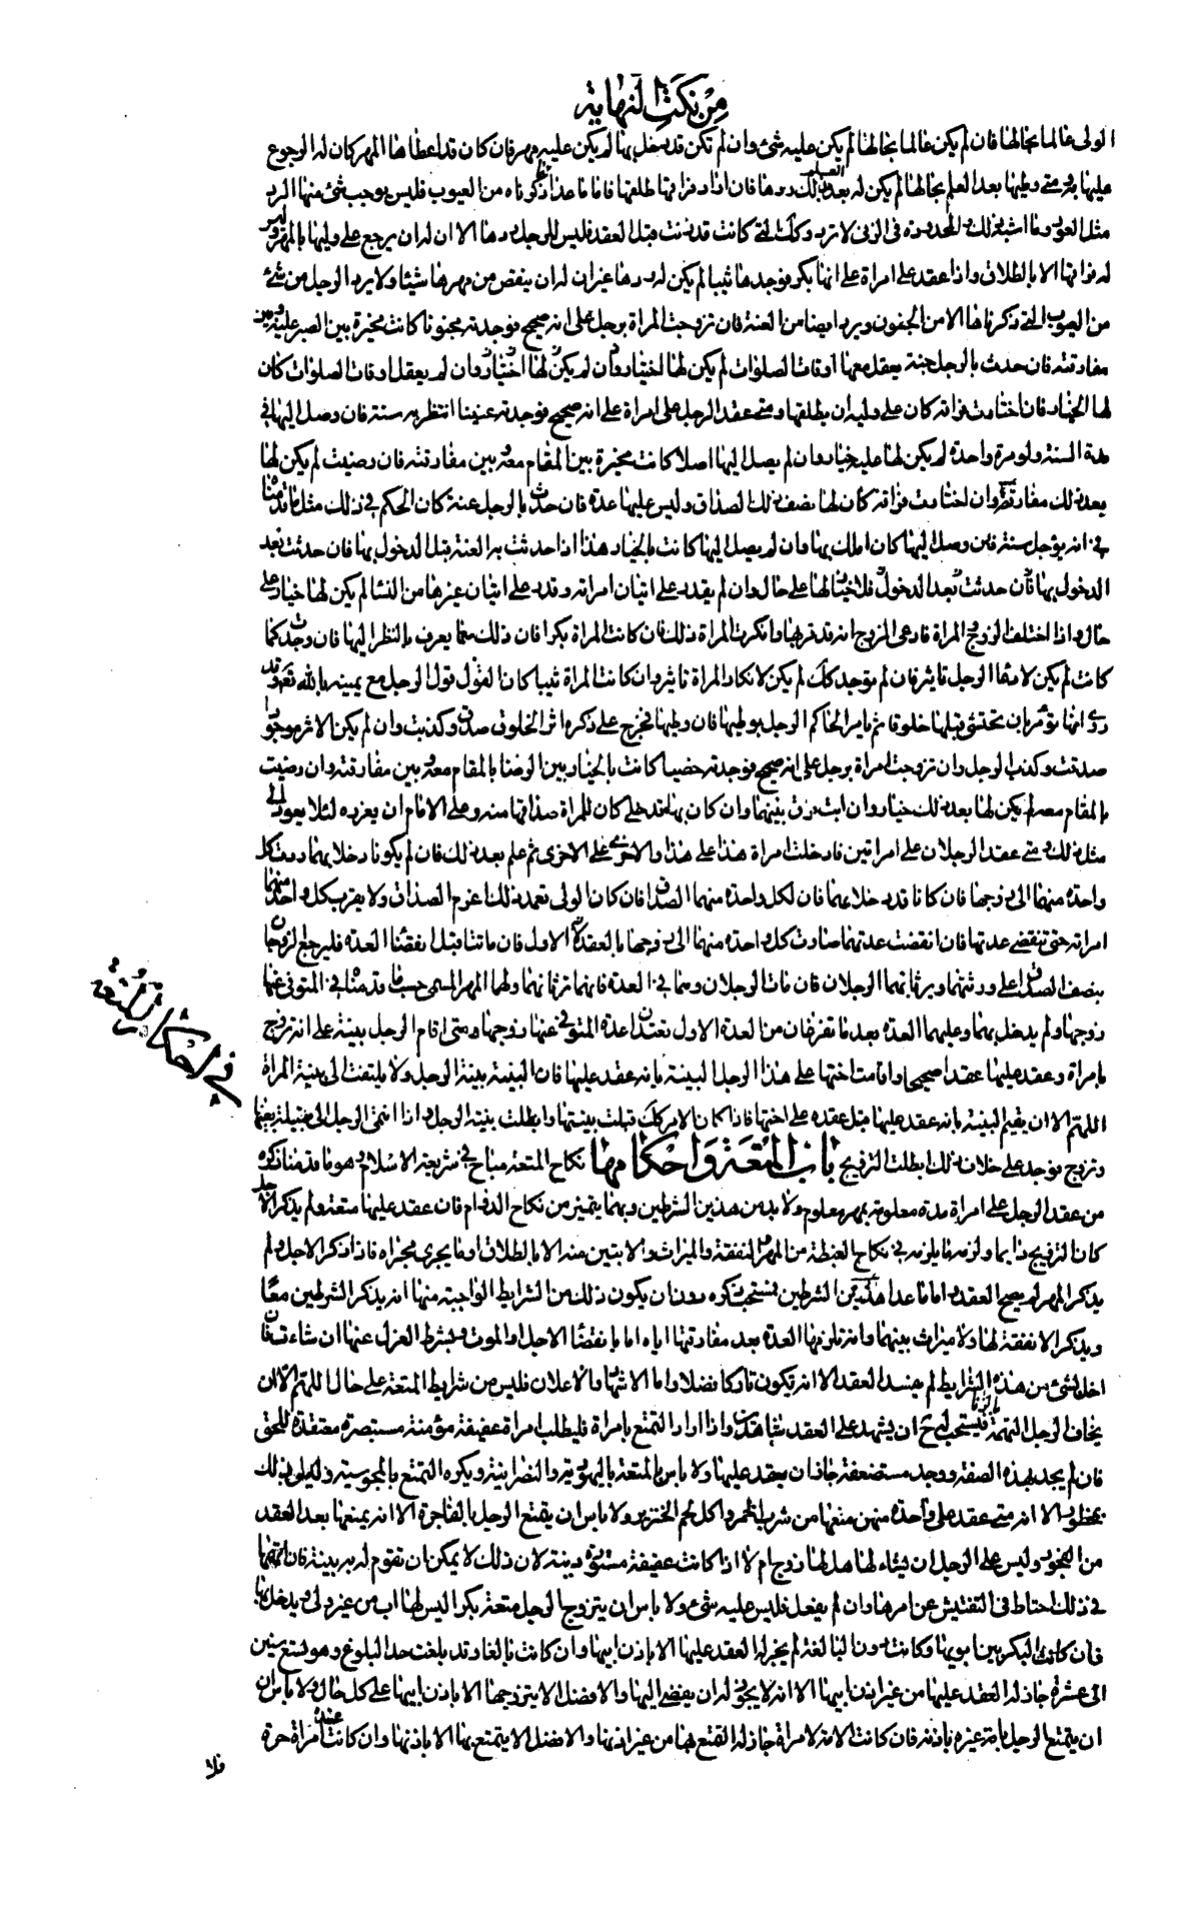 من نكت النهاية
الولى عالما بحالها فان لم يكن عالما بحالها لم يكن عليه شئ وان لم تكن قد دخل بها لم يكن عليه مهر فان كان قد اعطاها المهر كان له الرجوع
عليها به ومتى وطيها بعد العلم بحالها لم يكن له بعد ذلك ردها فان اراد فراقها طلقها فاما ما عدا ما ذكرناه من العيوب فليس يوجب شئ منها الرد
مثل العور وما اشبه ذلك والمحدودة فى الزنى لا ترد وكك التى كانت قد زنت قبل العقد فليس للرجل ردها الا ان له ان يرجع على وليها بالمهر وليس
له فراقها الا بالطلاق واذا عقد على امراة على انها بكر فوجدها ثيبا لم يكن له ردها غير ان له ان ينقص من مهرها شيئا ولا يرد الرجل من شئ
من العيوب التى ذكرناها الا من الجنون ويرد ايضا من العنة فان تزوجت المراة برجل على انه صحيح فوجدته مجنونا كانت مخيرة بين الصبر عليه وبين
مفارقته فان حدث بالرجل جنة يعقل معها اوقات الصلوات لم يكن لها اختيار وان لم يكن لها اختيار وان لم يعقل اوقات الصلوات كان
لها الخيار فان اختارت فراقه كان على وليه ان يطلقها ومتى عقد الرجل على امراة على انه صحيح فوجدته عنينا انتظر به سنة فان وصل اليها فى
مدة السنة ولو مرة واحدة لم يكن لها عليه خيار وان لم يصل اليها اصلا كانت مخيرة بين المقام معه وبين مفارقته فان رضيت لم يكن لها
بعد ذلك مفارقته وان اختارت فراقه كان لها نصف الصداق وليس عليها عدة فان حدث بالرجل عنة كان الحكم فى ذلك مثل ما قدمناه
فى انه يؤجل سنة فان وصل اليها كان املك بها وان لم يصل اليها كانت بالخيار هذا اذا حدثت به العنة قبل الدخول بها فان حدثت بعد
الدخول بها فان حدثت بعد الدخول فلا خيار لها على حال وان لم يقدر على اتيان امراته وقدر على اتيان غيرها من النسا لم يكن لها خيار على
حال واذا اختلف الزوج والمراة فادعى الزوج انه قد قربها وانكرت المراة ذلك فان كانت المراة بكرا فان ذلك مما يعرف بالنظر اليها فان وجدت كما
كانت لم يكن لادعا الرجل تاثير فان لم توجد كك لم يكن لانكار المراة تاثير وان كانت المراة ثيبا كان القول قول الرجل مع يمينه بالله تعه وقد
روى انها تؤمر بان تحشو قبلها خلوقا ثم يامر الحاكم الرجل بوطيها فان وطيها فخرج على ذكره اثر الخلوق صدق وكذبت وان لم يكن الاثر موجودا
صدقت وكذب الرجل وان تزوجت امراة برجل على انه صحيح فوجدته خصيا كانت بالخيار بين الرضا بالمقام معه وبين مفارقته وان رضيت
بالمقام معه لم يكن لها بعد ذلك خيار وان ابت فرق بينهما وان كان بها قد خلا كان للمراة صداقها منه وعلى الامام ان يعزره لئلا يعود الى
مثل ذلك ومتى عقد الرجلان على امراتين فادخلت امراة هذا على هذا والاخرى على الاخرى ثم علم بعد ذلك فان لم يكونا دخلا بهما ردت كل
واحدة منهما الى زوجها فان كانا قد دخلا بهما فان لكل واحدة منهما الصداق فان كان الولى تعمد ذلك اغرم الصداق ولا يقرب كل واحد منهما
امراته حتى تنقضى عدتها فان انقضت عدتهما صارت كل واحدة منهما الى زوجها بالعقد الاول فان ماتتا قبل انقضا العدة فليرجع الزوجان
بنصف الصداق على ورثتهما ويرثانهما الرجلان فان مات الرجلان وهما فى العدة فانهما ترثانهما ولهما المهر المسمى حسب ما قدمناه فى المتوفى عنها
زوجها ولم يدخل بهما وعليهما العدة بعد ما تفرغان من العدة الاول تعتدان عدة المتوفى عنها زوجها ومتى اقام الرجل بينة على انه تزوج
بامراة وعقد عليها عقدا صحيحا واقامت اختها على هذا الرجل البينة بانه عقد عليها فان البينة بينة الرجل ولا يلتفت الى بينة المراة
اللهم الا ان يقيم البينة بانه عقد عليها قبل عقده على اختها فاذا كان الامر كك قبلت بينتها وابطلت بينة الرجل واذا انتمى الرجل الى قبيلة بعينها
وتزوج فوجد على خلاف ذلك ابطلت التزويج باب المتعة واحكامها نكاح المتعة مباح فى شريعة الاسلام وهو ما قدمنا ذكره
من عقد الرجل على امراة مدة معلومة بمهر معلوم ولا بد من هذين الشرطين وبهما يتميز من نكاح الدوام فان عقد عليها متعة ولم يذكر الاجل
كان التزويج دايما ولزمه ما يلزمه فى نكاح الغبطة من المهر والنفقة والميراث والا تبين منه الا بالطلاق او ما يجرى مجراه فاذا ذكر الاجل ولم
يذكر المهر لم يصح العقد واما ما عدا هذين الشرطين فمستحب ذكره دون ان يكون ذلك من الشرايط الواجبة منها انه يذكر الشرطين معا
ويذكر الا نفقة لها ولا ميراث بينهما وانه تلزمها العدة بعد مفارقتها اياه اما بانقضا الاجل او الموت ويشترط العزل عنها ان شاء فان
اخل بشئ من هذه الشرايط لم يفسد العقد الا انه يكون تاركا فضلا واما الاشهاد والاعلان فليس من شرايط المتعة على حال اللهم الا ان
يخاف الرجل التهمة بالزنا فيستحب له ح ان يشهد على العقد شاهدين واذا اراد التمتع بامراة فليطلب امراة عفيفة مؤمنة مستبصرة معتقدة للحق
فان لم يجد بهذه الصفة ووجد مستضعفة جاز ان يعقد عليها ولا باس بالمتعة باليهودية والنصرانية ويكره التمتع بالمجوسية وليس ذلك
بمحظور الا انه متى عقد على واحدة منهن منعها من شرب الخمر واكل لحم الخنزير ولا باس ان يتمتع الرجل بالفاجرة الا انه يمنعها بعد العقد
من الفجور وليس على الرجل ان يسئلها هل لها زوج ام لا اذا كانت عفيفة مستورة دينة لان ذلك لا يمكن ان تقوم له به بينة فان اتهمها
فى ذلك احتاط فى التفتيش عن امرها وان لم يفعل فليس عليه شئ ولا باس ان يتزوج الرجل متعة بكرا ليس لها اب من غير ولى ويدخل بها
فان كانت البكر بين ابويها وكانت دون البالغة لم يجز له العقد عليها الا باذن ابيها وان كانت بالغا وقد بلغت حد البلوغ وهو تسع سنين
الى عشرة جاز له العقد عليها من غير اذن ابيها الا انه لا يجوز له ان يفضى اليها والافضل الا يتزوجها الا باذن ابيها على كل حال ولا باس
ان يتمتع الرجل بامة غيره باذنه فان كانت الامة لامراة جاز له التمتع بها من غير اذنها والافضل الا يتمتع بها الا باذنها وان كانت عنده امراة حرة
فلا
فى احكام المتعة